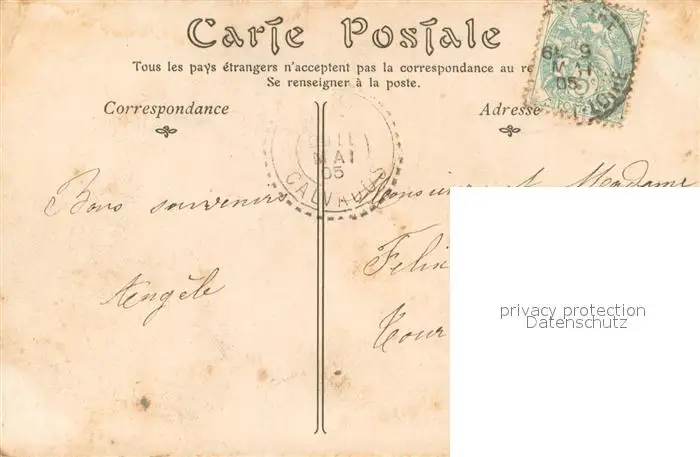 Carte Postale
Tous les pays étrangers n'acceptent pas la correspondance au re
Se renseigner à la poste.
Correspondance
Adresse
MAI
05
CALVADOS
Bons souvenirs
Angèle
Monsieur et Madame
Felix
Tour
privacy protection
Datenschutz